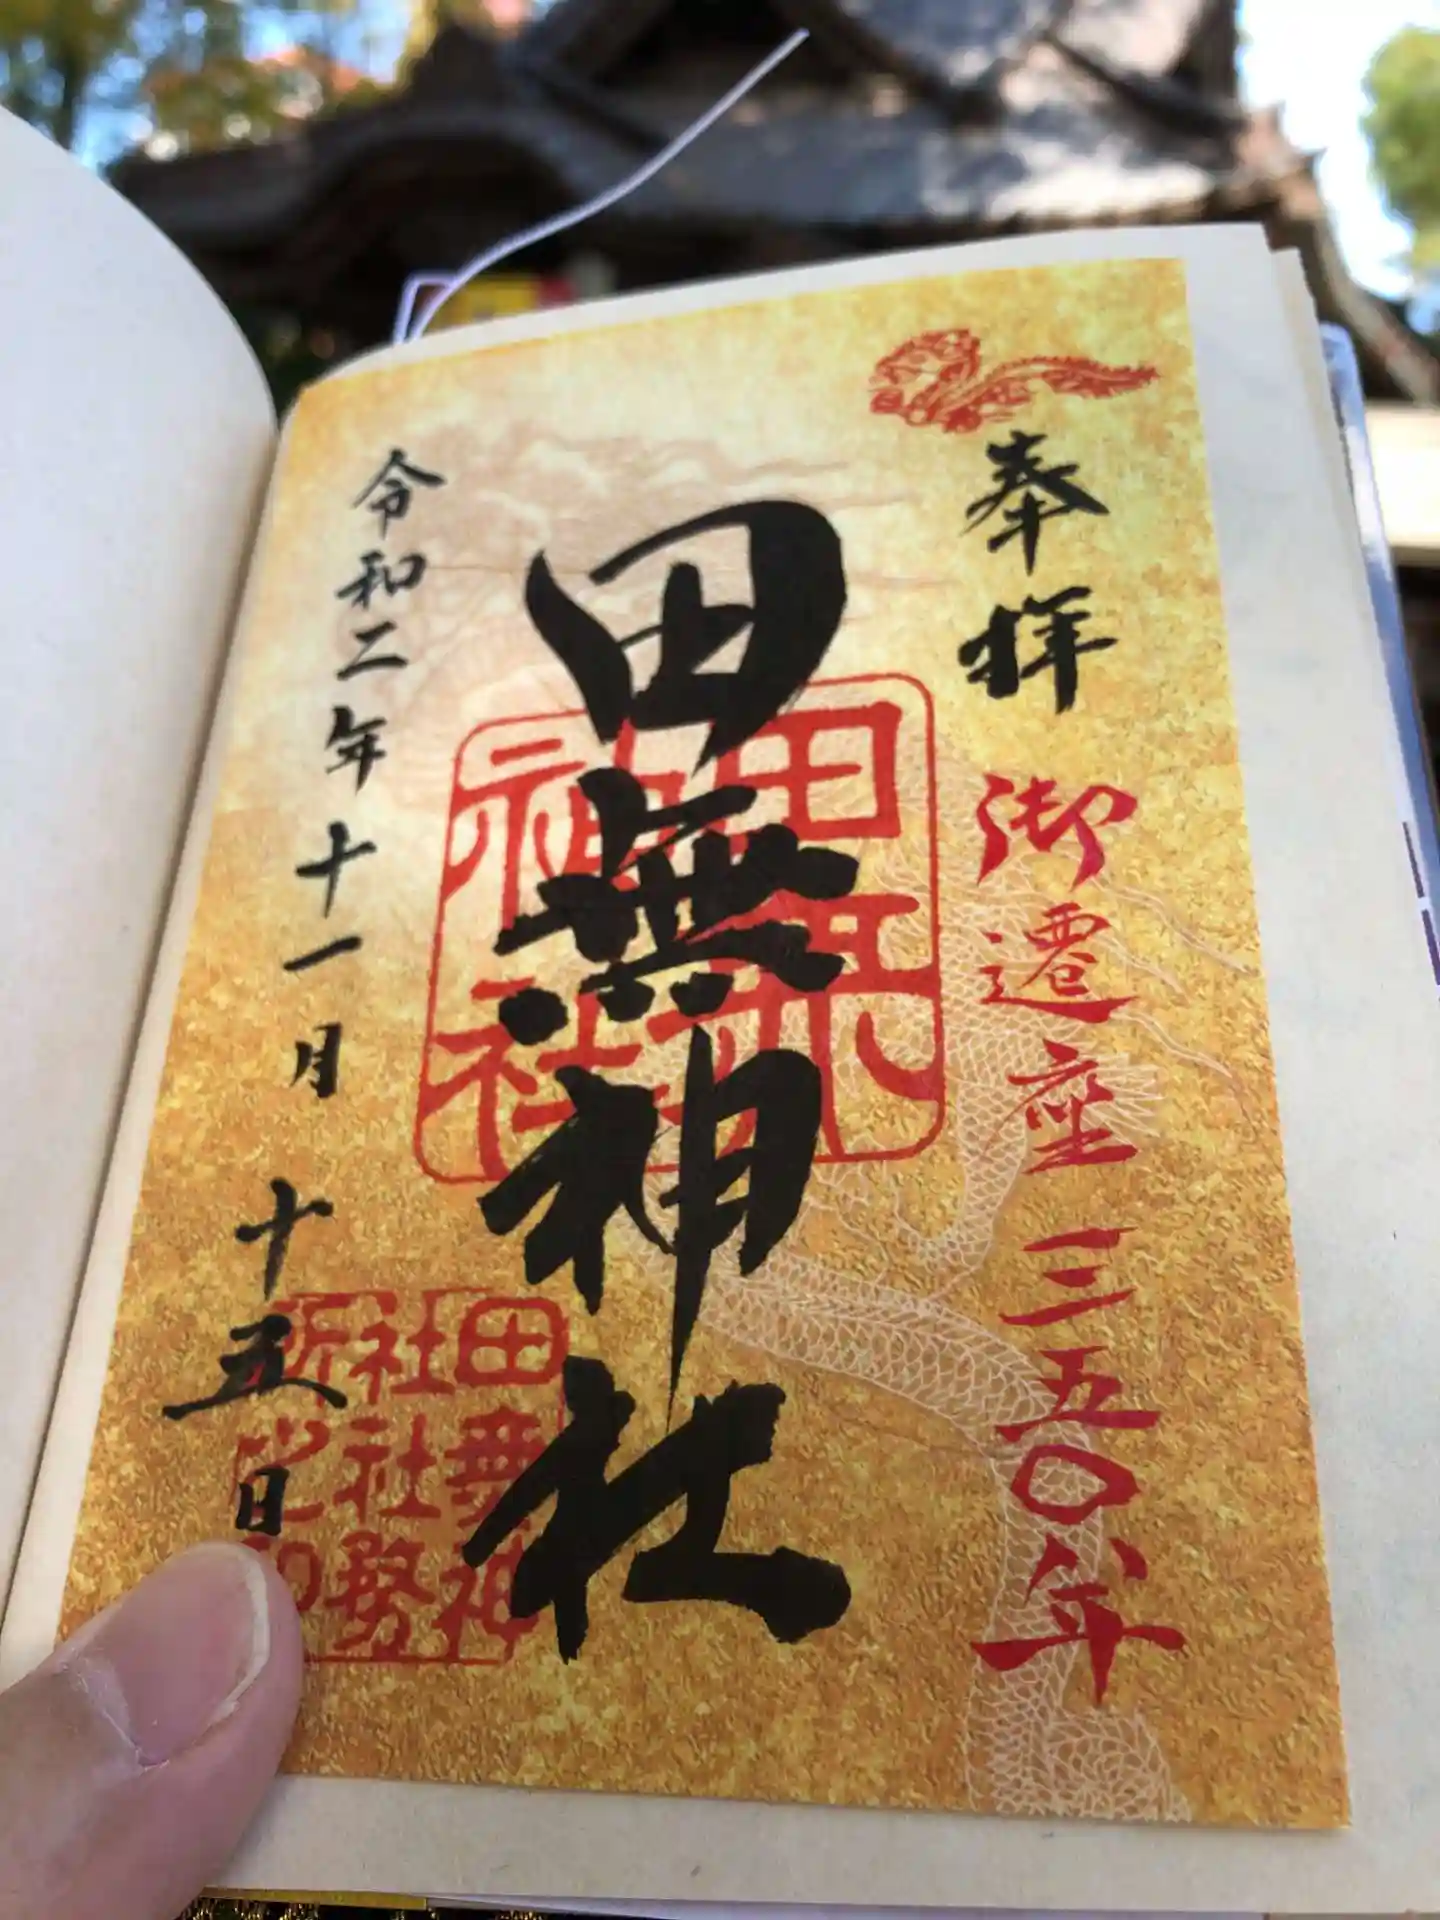 奉拝
御遷座三五〇年
田無神社
田無神社
令和二年十一月十五日
田無神社社務所之印